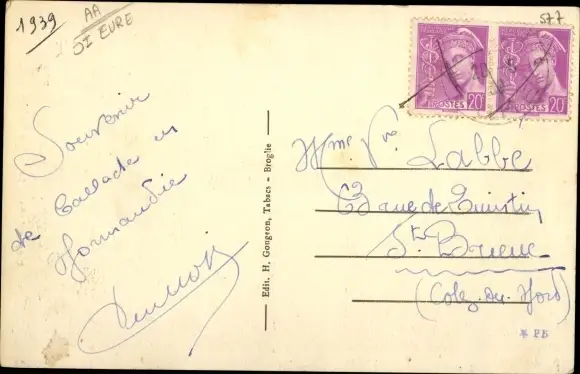 1939
AA
ST EURE
577
POSTES 20c
POSTES 20c
Souvenir
de Ballade en
Normandie
Edit. H. Gougeon, Tabacs - Broglie
Mme Vve Labbe
rue de Quintin
St Brieuc
(Côtes-du-Nord)